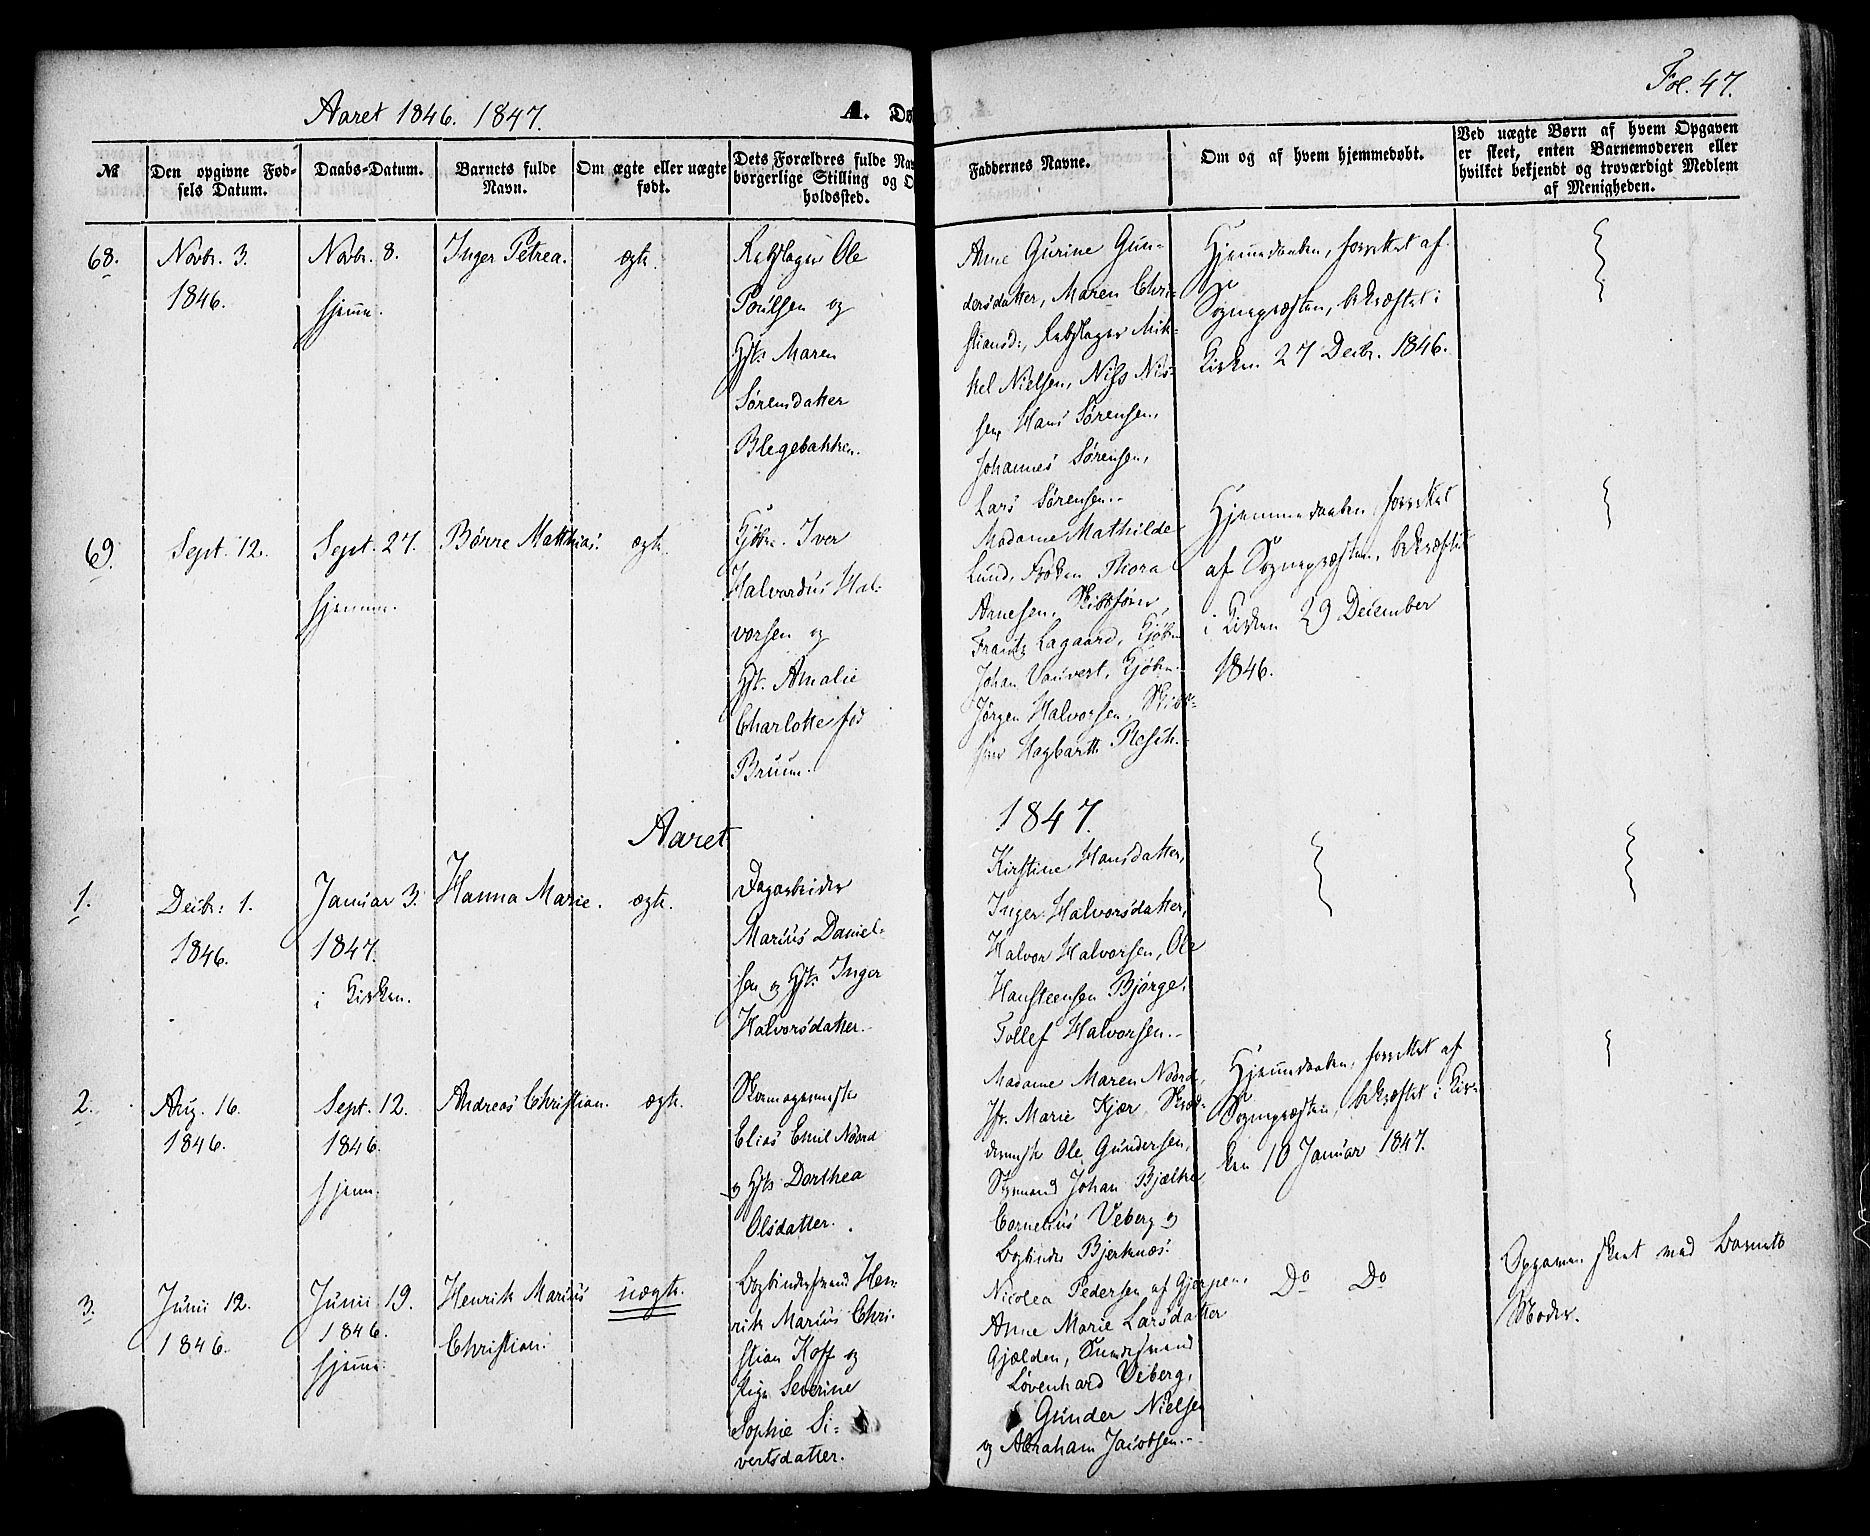 Aaret 1846. 1847.
A. Dø
Fol. 47.
№
Den opgivne Fød-
sels Datum.
Daabs-Datum.
Barnets fulde
Navn.
Om ægte eller uægte
født.
Dets Forældres fulde Nav
borgerlige Stilling og O
holdssted.
Faddernes Navne.
Om og af hvem hjemmedøbt.
Ved uægte Børn af hvem Opgaven
er skeet, enten Barnemoderen eller
hvilket bekjendt og troværdigt Medlem
af Menigheden.
68.
Novbr. 3.
1846.
Novbr. 8.
hjemme.
Inger Petrea.
ægte.
Rebslager Ole
Poulsen og
Hst: Maren
Sørensdatter
Blegebakken.
Anne Gurine Gun-
dersdatter, Maren Chri-
stiansd:, Rebslager Mik-
kel Nielsen, Nils Nil-
sen, Hans Sørensen,
Johannes Sørensen,
Lars Sørensen.-
Hjemmedaaben, forrettet af
Sognepræsten, bekræftet i
Kirken 27 Decbr. 1846.
69.
Sept. 12.
Sept. 27.
hjemme.
Børre Matthias.
ægte.
Kjøbm. Iver
Halvordus Hal-
vorsen og
Hst. Amalie
Charlotte fød
Bruun.
Madame Mathilde
Lund, Frøken Thora
Arnesen, Skibsfører
Frantz Lagaard, Kjøbm
Johan Vauvert, Kjøbm.
Jørgen Halvorsen, Skibs-
fører Hagbarth Plesch.
Hjemmedaaben forrettet
af Sognepræsten, bekræftet
i Kirken 29 December
1846.
Aaret
1847.
1.
Decbr: 1.
1846.
Januar 3.
1847.
i Kirken.
Hanna Marie.
ægte.
Dagarbeider
Marius Daniel-
sen og Hst: Inger
Halvorsdatter.-
Kirstine Hansdatter,
Inger Halvorsdatter,
Halvor Halvorsen, Ole
Hansteensen Bjørge,
Tollef Halvorsen.-
2.
Aug. 16
1846.
Sept. 12.
1846.
hjem.
Andreas Christian.
ægte.
Skomagermester
Elias Emil Noord
og Hst: Dorthea
Olsdatter.
Madame Maren Noord,
Jfr. Marie Kjær, Skræd-
dermester Ole Gundersen,
Styrmand Johan Bjælke
Cornelius Veberg og
Bogbinder Bjerknæs.
Hjemmedaaben, forrettet af
Sognepræsten, bekræftet i Kir-
ken 10 Januar 1847.
3.
Junii 12.
1846.
Junii 19.
1846.
hjemme.
Henrik Marius
Christian.
uægte.
Bogbindersvend Hen-
rik Marius Chri-
stian Koff og
Pige Severine
Sophie Si-
vertsdatter.
Nicolea Pedersen af Gjerpen,
Anne Marie Larsdatter
Gjælden, Smedsvend
Løvenhard Veberg,
Gunder Nielsen
og Abraham Jacobsen.--
Do Do
Opgaven skeet ved Barnets
Moder.